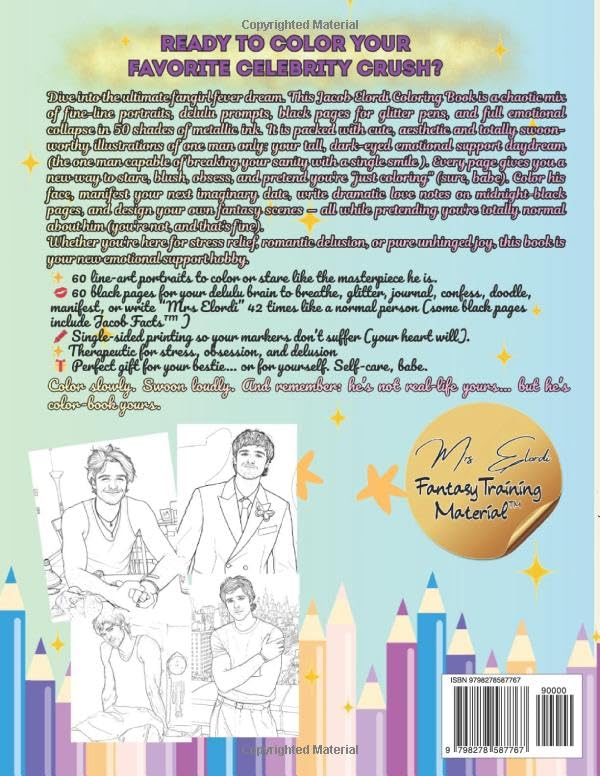 Copyrighted Material
READY TO COLOR YOUR
FAVORITE CELEBRITY CRUSH?
Dive into the ultimate fangirl fever dream. This Jacob Elordi Coloring Book is a chaotic mix
of fine-line portraits, delulu prompts, black pages for glitter pens, and full emotional
collapse in 50 shades of metallic ink. It is packed with cute, aesthetic and totally swoon-
worthy illustrations of one man only: your tall, dark-eyed emotional support daydream
(the one man capable of breaking your sanity with a single smile ). Every page gives you a
new way to stare, blush, obsess, and pretend you're "just coloring" (sure, babe). Color his
face, manifest your next imaginary date, write dramatic love notes on midnight-black
pages, and design your own fantasy scenes — all while pretending you're totally normal
about him (you're not, and that's fine).
Whether you're here for stress relief, romantic delusion, or pure unhinged joy, this book is
your new emotional support hobby.
✨ 60 line-art portraits to color or stare like the masterpiece he is.
💋 60 black pages for your delulu brain to breathe, glitter, journal, confess, doodle,
manifest, or write "Mrs Elordi" 42 times like a normal person (some black pages
include Jacob Facts™ )
🖍 Single-sided printing so your markers don't suffer (your heart will).
✨ Therapeutic for stress, obsession, and delusion
🎁 Perfect gift for your bestie... or for yourself. Self-care, babe.
Color slowly. Swoon loudly. And remember: he's not real-life yours... but he's
color-book yours.
Mrs Elordi
Fantasy Training
Material™
ISBN 9798278587767
90000
9 798278 587767
Copyrighted Material